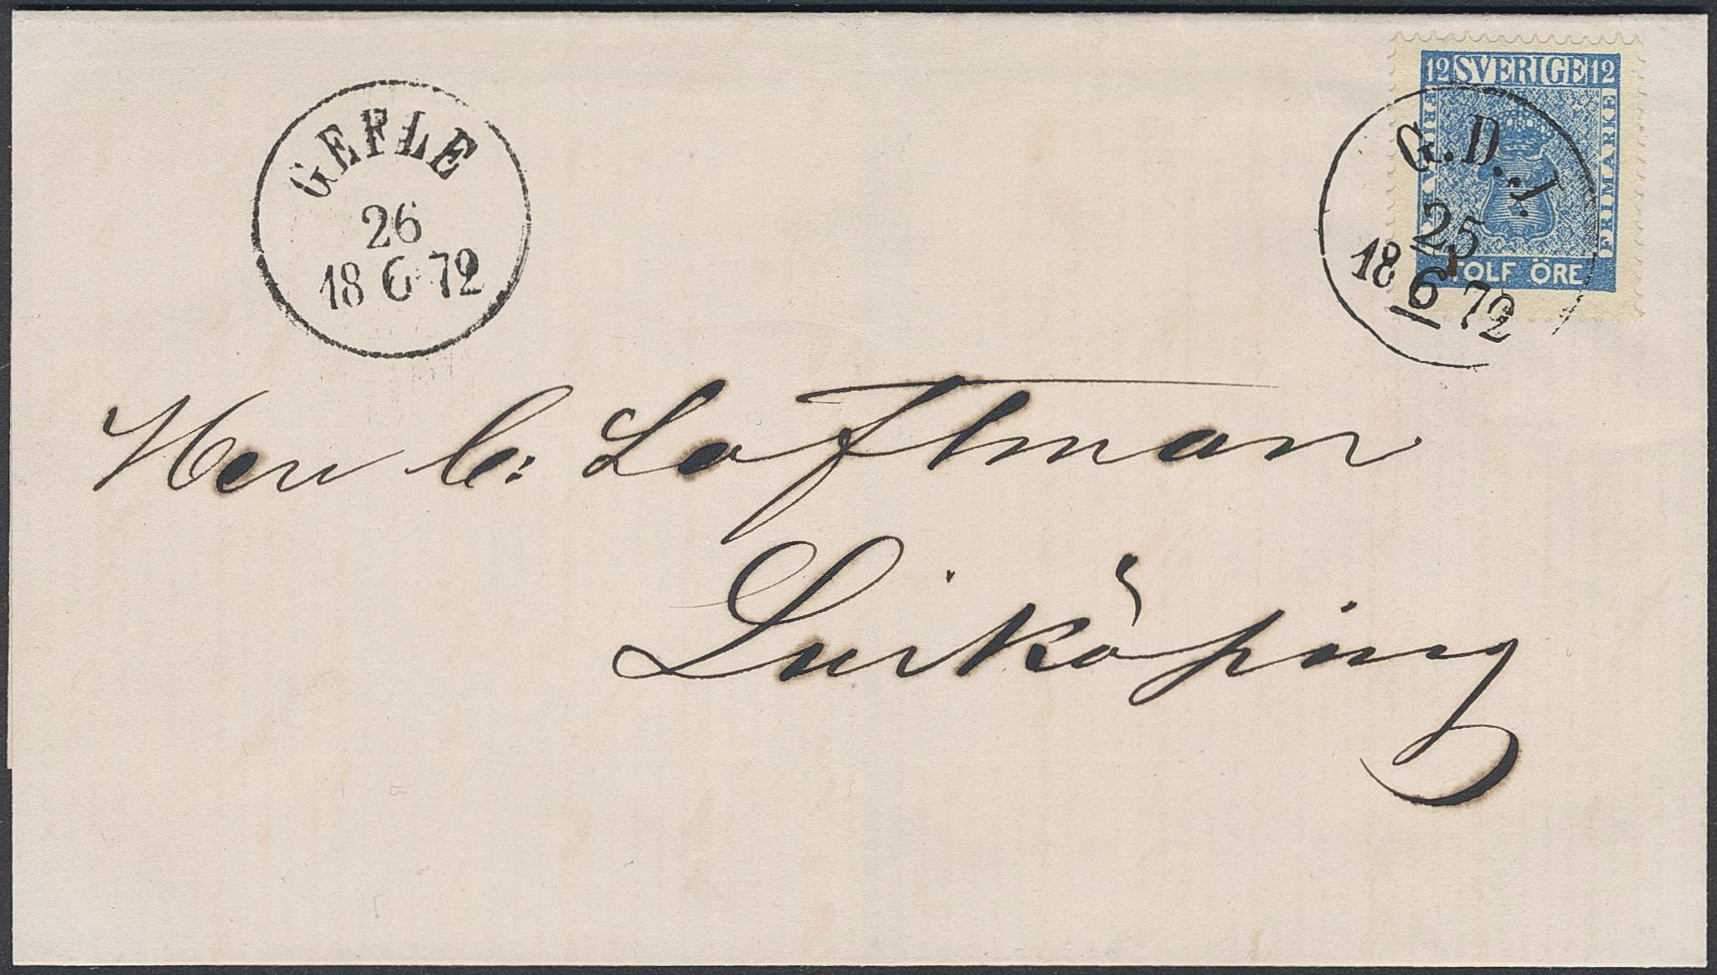 GEFLE
26
18 6 72
12 SVERIGE 12
FRIMÄRKE
FRIMÄRKE
TOLF ÖRE
G.D.J.
25
18 6 72
Herr C: Loftman
Linköping